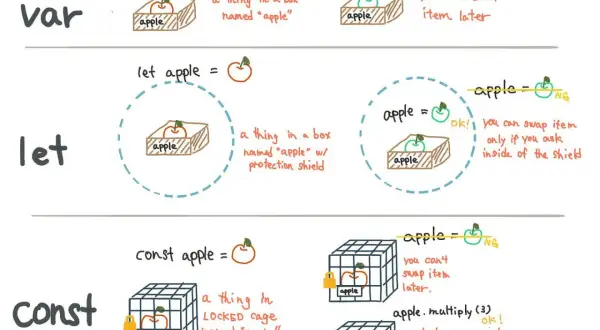 var
apple
a thing in a box
named "apple"
apple
item later
let
let apple =
apple
a thing in a box
named "apple" w/
protection shield
apple =
OK!
apple
apple =
NG
you can swap item
only if you ask
inside of the shield
const
const apple =
a thing in
LOCKED cage
apple
apple =
NG
you can't
swap item
later.
apple.multiply(3)
OK!